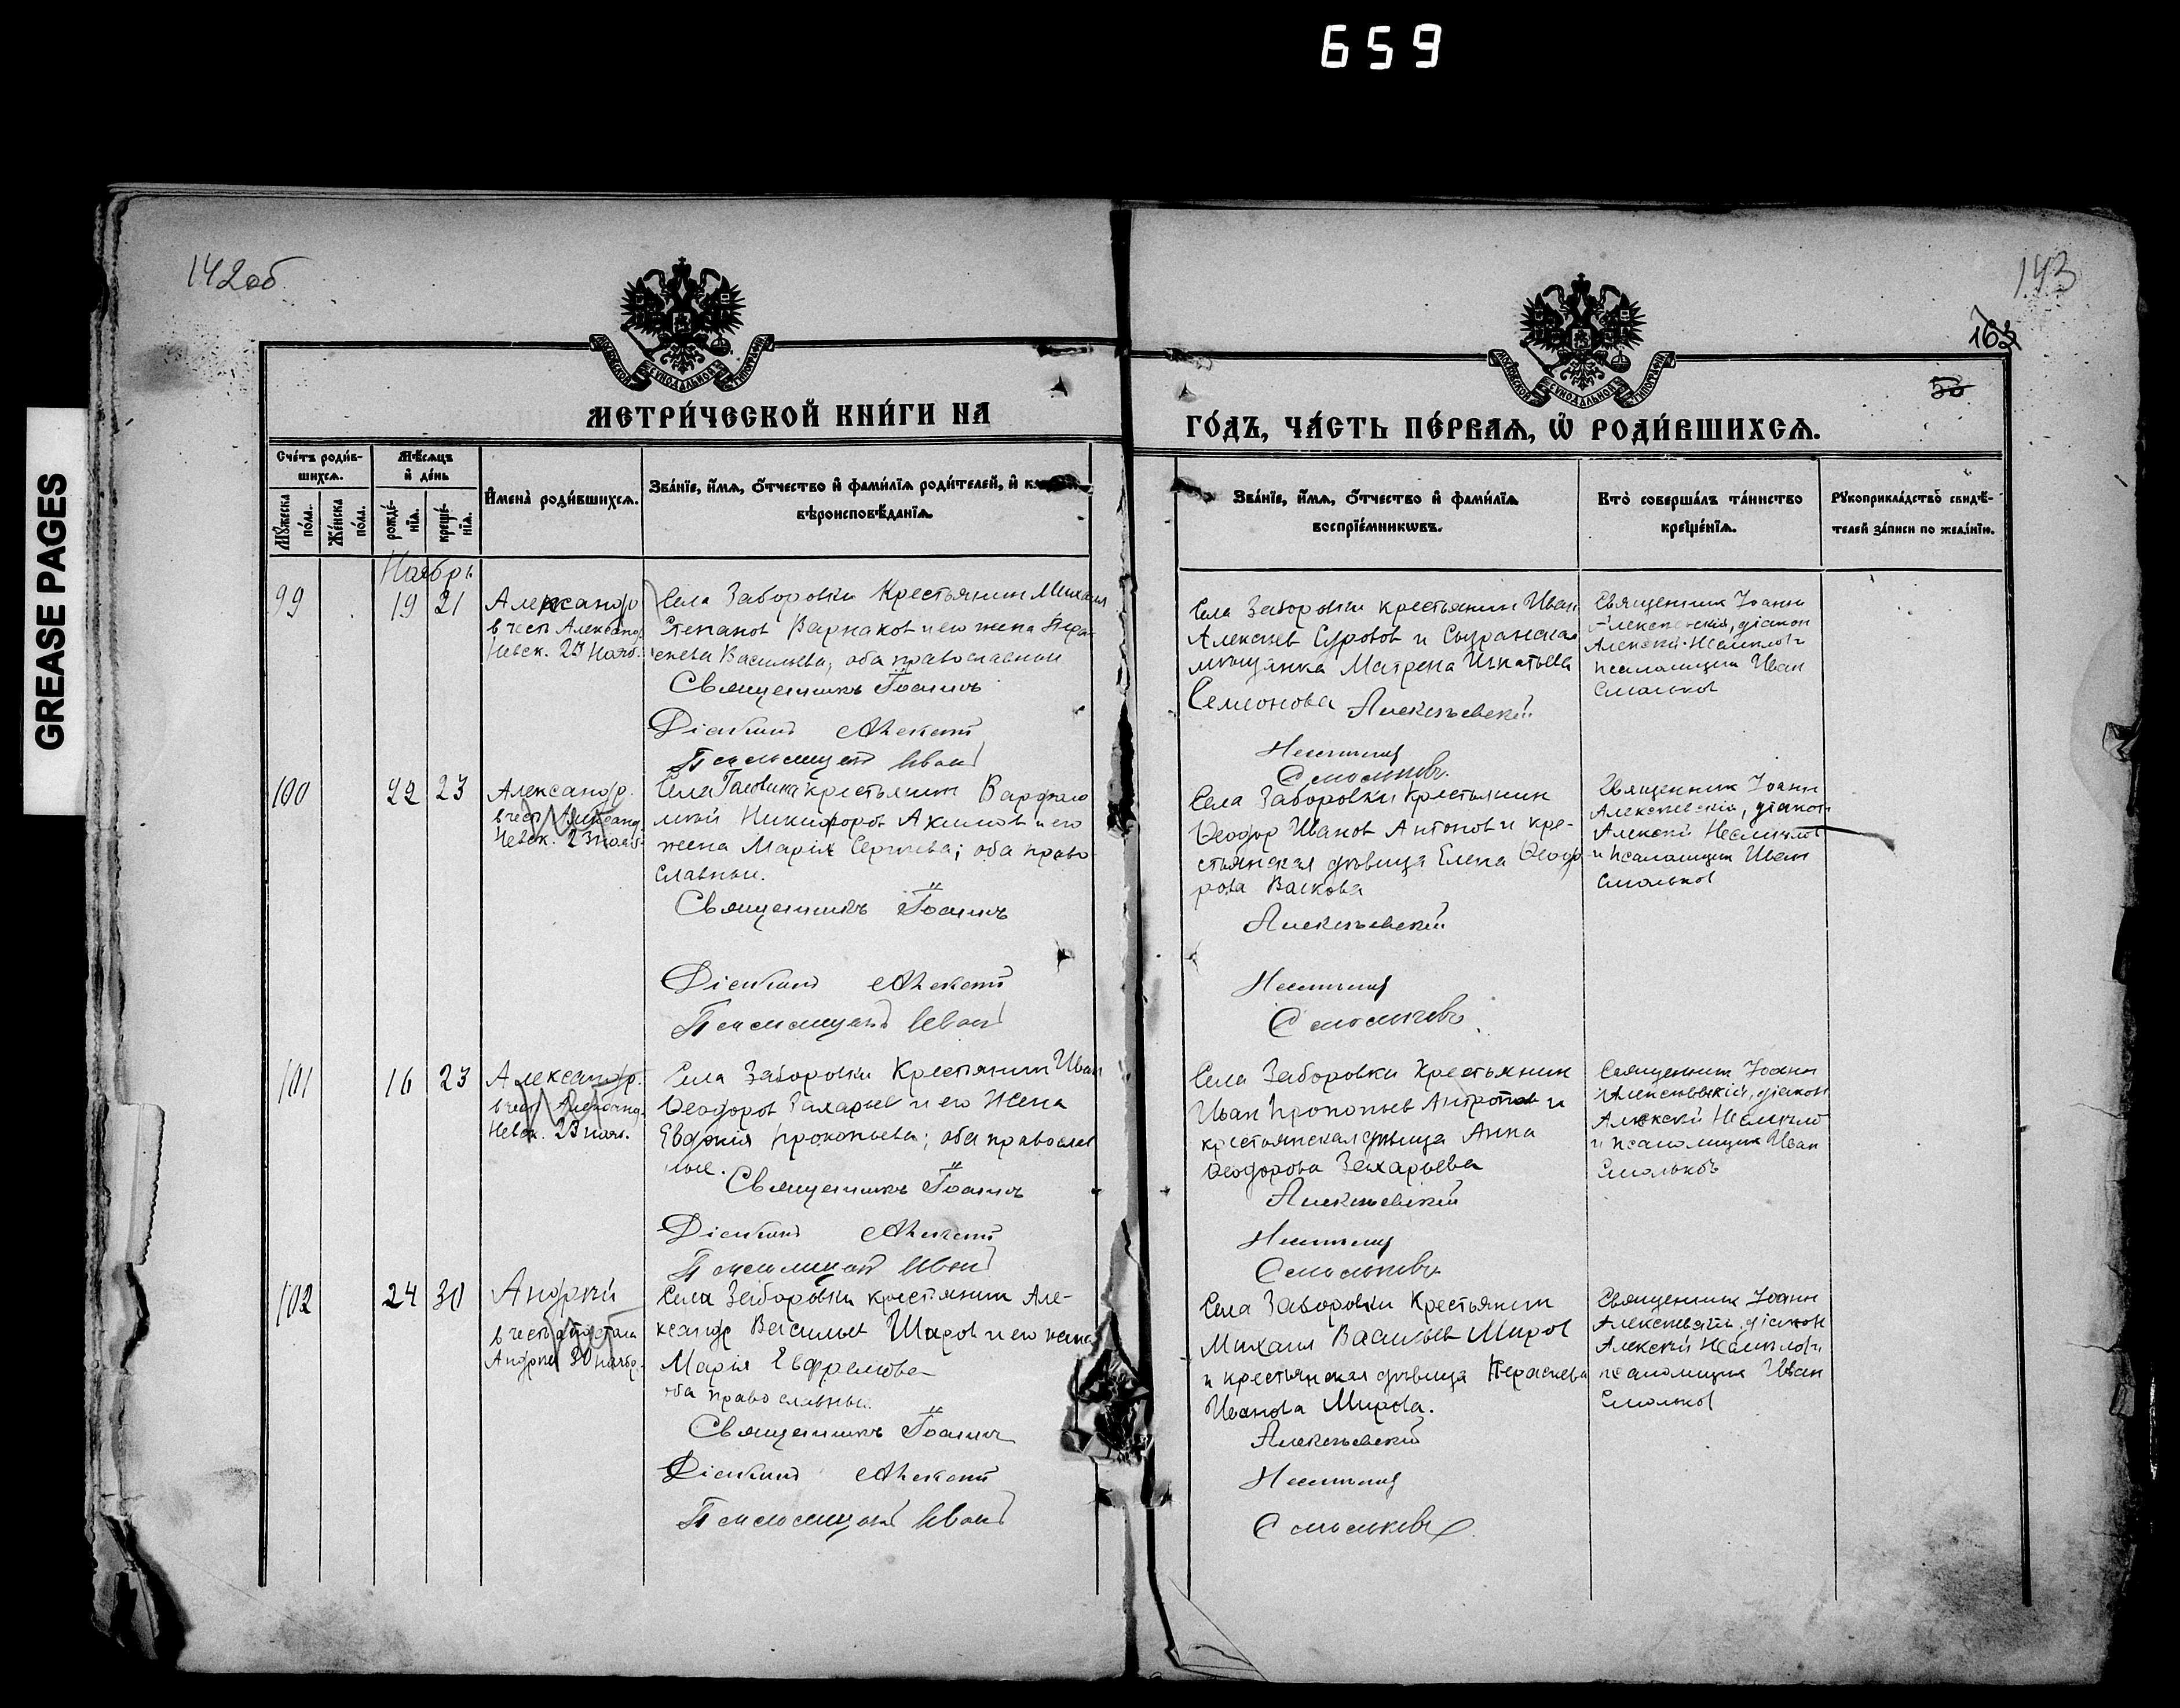 659
GREASE PAGES
142об
143
163
50
МОСКОВСКОЙ СѴНОДАЛЬНОЙ ТИПОГРАФІИ
МОСКОВСКОЙ СѴНОДАЛЬНОЙ ТИПОГРАФІИ
МЕТРИ́ЧЕСКОЙ КНИ́ГИ НА
ГО́ДЪ, ЧА́СТЬ ПЕ́РВАѦ, Ѽ РОДИ́ВШИХСѦ.
Сче́тъ роди́в-
шихсѧ.
Мꙋ́жеска по́ла.
Же́нска по́ла.
Мѣ́сѧцъ
и҆ де́нь
рожде́-нїѧ.
креще́-нїѧ.
И҆мена̀ роди́вшихсѧ.
Зва́нїе, и҆́мѧ, ѻ҆́тчество и҆ фами́лїѧ роди́телей, и҆
вѣроисповѣ́данїѧ.
Зва́нїе, и҆́мѧ, ѻ҆́тчество и҆ фами́лїѧ
воспрїе́мникѡвъ.
Кто̀ соверша́лъ та́инство
креще́нїѧ.
Рꙋкоприкла́дство свидѣ́-
телей за́писи по жела́нїю.
Ноябрь
99 19 21
Александр
в честь Александ.
Невск. 23 Нояб.
Села Заборовки Крестьянин Михаил
Степанов Варнаков и его жена Пара-
скева Васильева, оба православныи
Священникъ Іоаннъ
Діаконъ Алексій
Псаломщикъ Иванъ
Села Заборовки крестьянин Иван
Алексеев Суровов и Сызранская
мещанка Матрена Игнатьева
Семионова
Алексѣевскій
Неаминов
Смольковъ
Священник Іоанн
Алексеевскій, діакон
Алексій Неаминов и
псаломщик Иван
Смольков
100 22 23
Александр.
в честь Александ.
Невск. 23 нояб.
Села крестьянин Варфало
мей Никифоров Акимов и его
жена Марія Сергиева; оба право
славныи.
Священникъ Іоаннъ
Діаконъ Алексій
Псаломщикъ Иванъ
Села Заборовки Крестьянин
Ѳеодор Иванов Антонов и кре-
стьянская дѣвица Елена Ѳеодо
рова Васкова
Алексѣевскій
Неаминов
Смольковъ
Священник Іоанн
Алексеевскій, діакон
Алексій Неаминов
и псаломщик Иван
Смольков
101 16 23
Александр.
в честь Александ.
Невск. 23 нояб.
Села Заборовки Крестьянин Иван
Ѳеодоров Захарьев и его жена
Евдокія Прокопьева; оба православ
ные.
Священникъ Іоаннъ
Діаконъ Алексій
Псаломщикъ Иванъ
Села Заборовки Крестьянин
Иван Прокопьев и
крестьянская дѣвица Анна
Ѳеодорова Захарьева
Алексѣевскій
Неаминов
Смольковъ
Священник Іоанн
Алексеевскій, діакон
Алексій Неаминов
и псаломщик Иван
Смольковъ
102 24 30
Андрей
в честь апостола
Андрея 30 ноябр.
Села Заборовки крестьянин Але-
ксандр Васильев Шаров и его жена
Марія Евфремова
оба православныи.
Священникъ Іоаннъ
Діаконъ Алексій
Псаломщикъ Иванъ
Села Заборовки Крестьянин
Михаил Васильев Миров
и крестьянская дѣвица Параскева
Иванова Мирова.
Алексѣевскій
Неаминов
Смольковъ
Священник Іоанн
Алексеевскій, діакон
Алексій Неаминов и
псаломщик Иван
Смольков